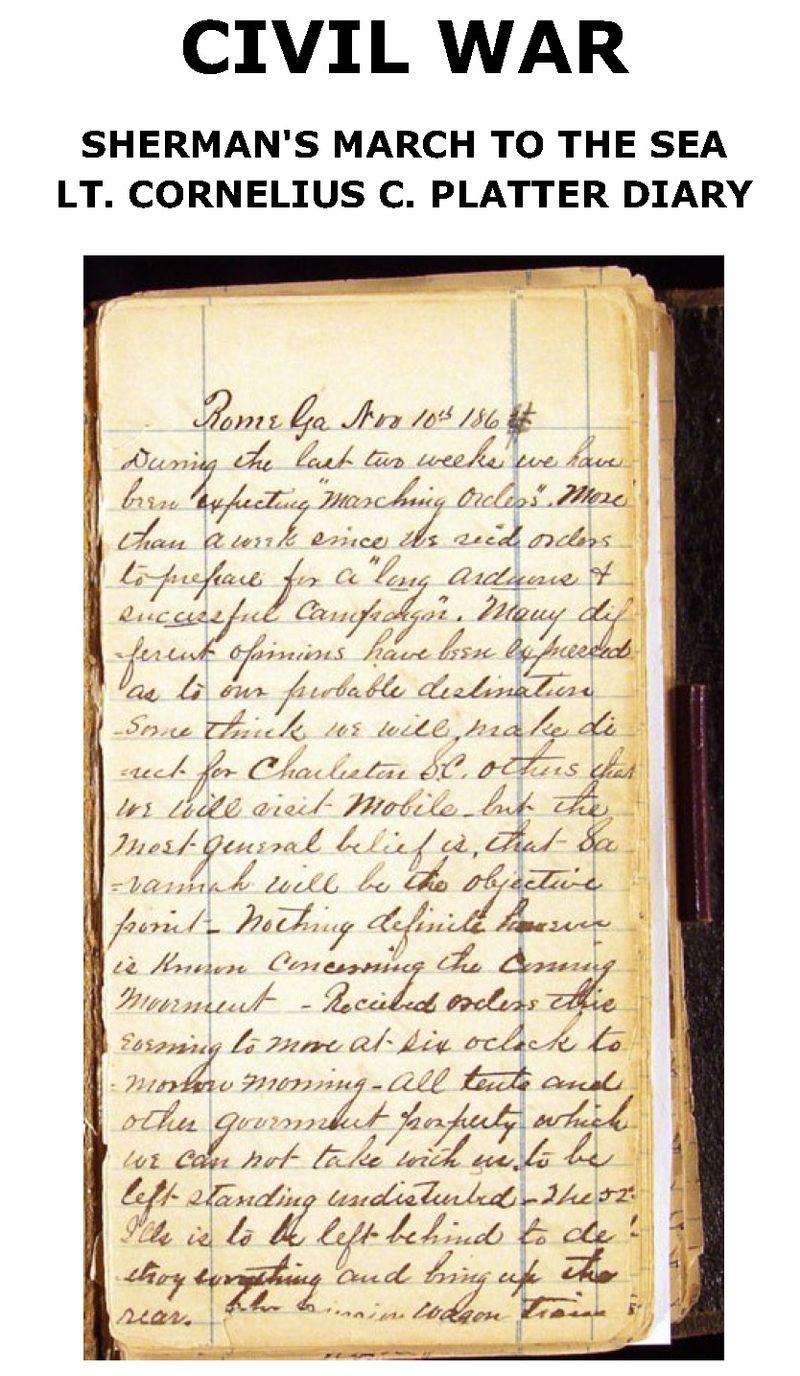 CIVIL WAR
SHERMAN'S MARCH TO THE SEA
LT. CORNELIUS C. PLATTER DIARY
Rome Ga Nov 10th 1864
During the last two weeks we have
been expecting "Marching Orders". More
than a week since we rec'd orders
to prepare for a "long arduous &
successful Campaign". Many dif
-ferent opinions have been expressed
as to our probable destination
-Some think we will make di
=rect for Charleston S.C. others that
we will visit Mobile - but the
most general belief is, that Sa
=vannah will be the objective
point - Nothing definite however
is Known Concerning the Coming
Movement - Recieved orders this
Evening to move at six oclock to
-morrow morning - All tents and
other government property which
we can not take with us to be
left standing undisturbed - The 52"
Ills is to be left behind to de
-stroy everything and bring up the
rear. wagon train